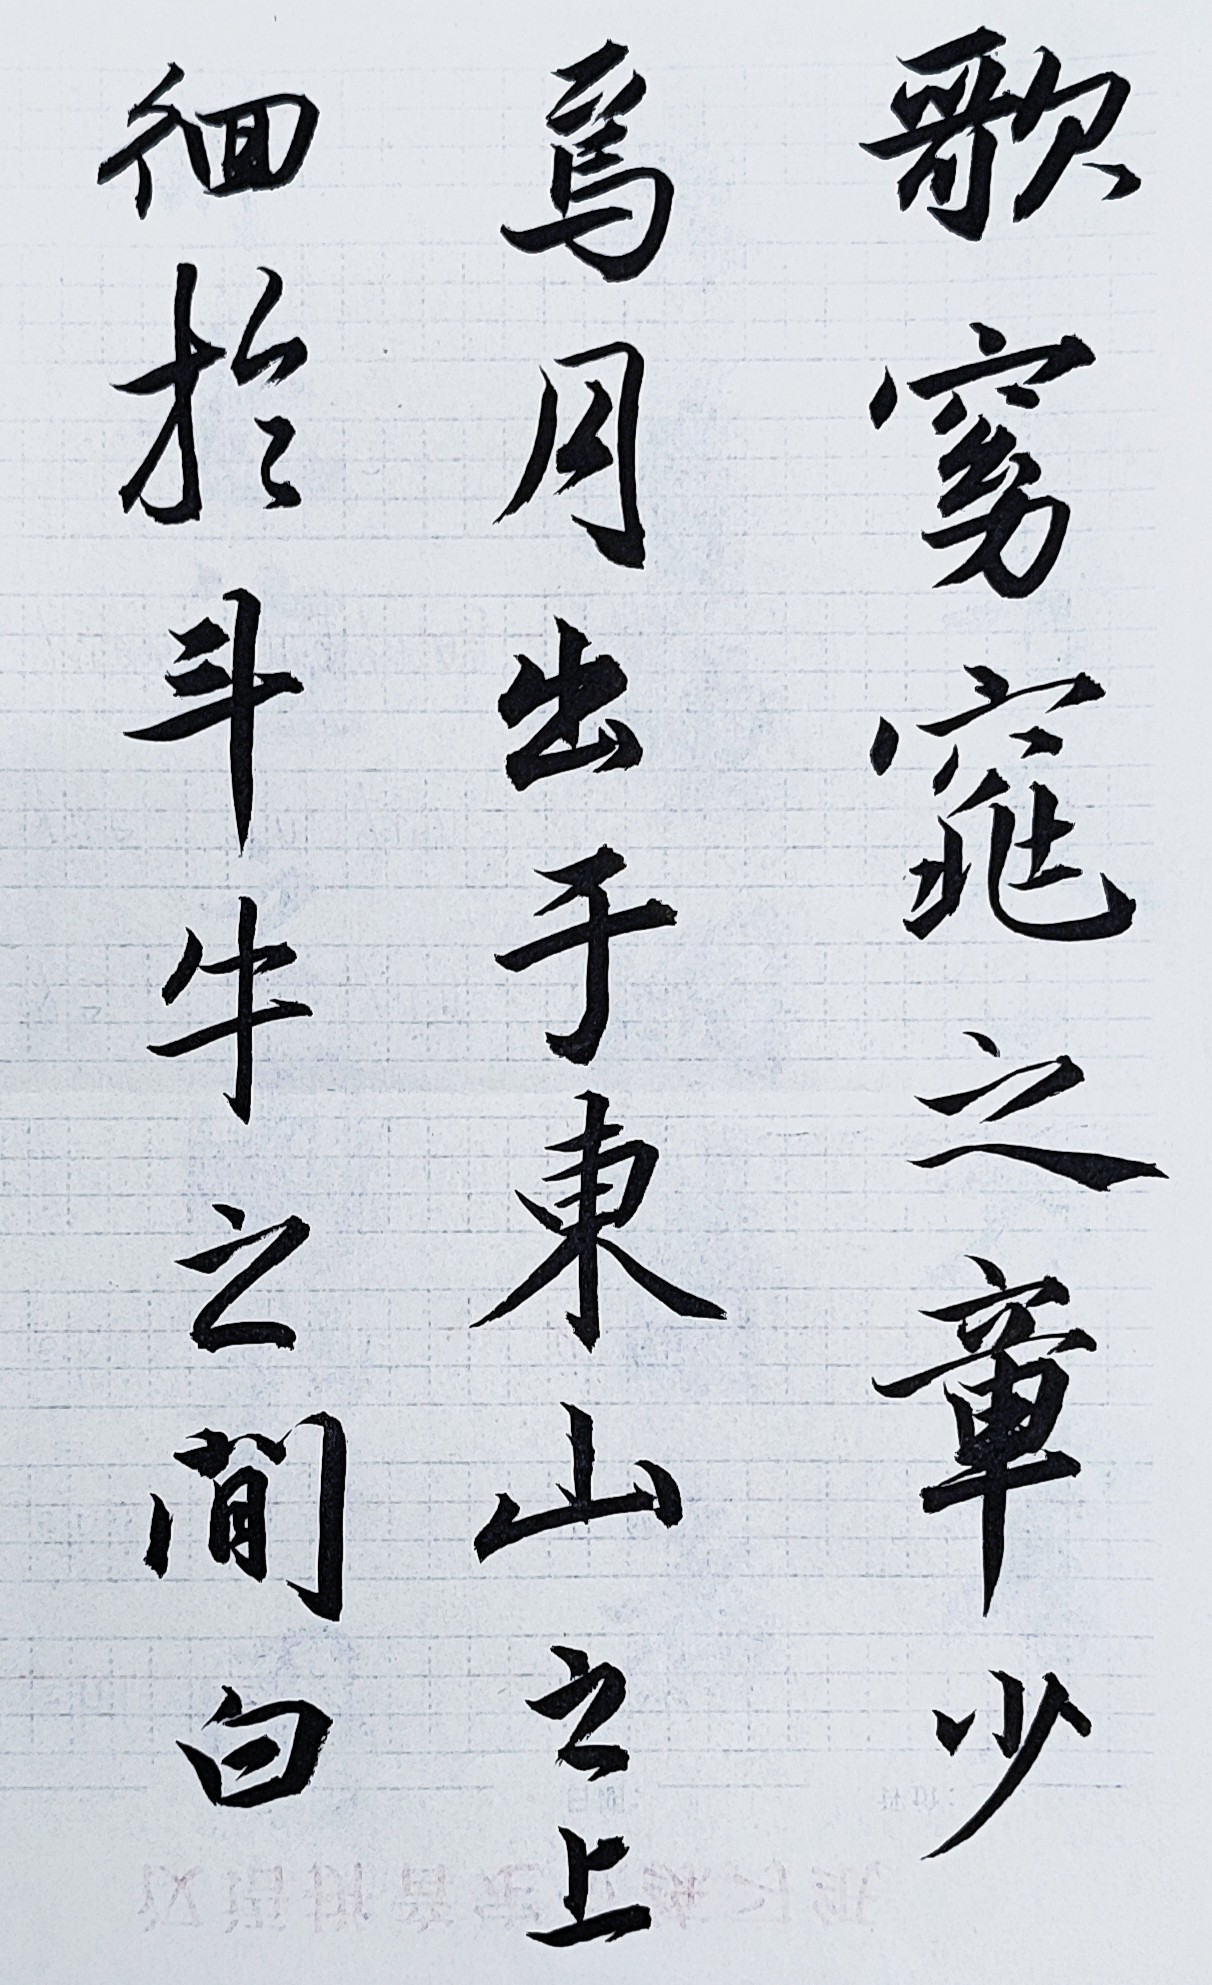 歌窈窕之章少
焉月出于東山之上
徊於斗牛之間白